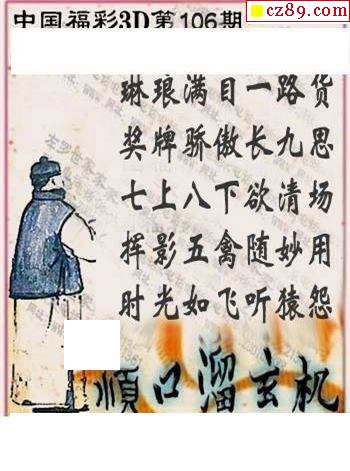 cz89.com
中国福彩3D第106期
琳琅满目一路货
奖牌骄傲长九思
七上八下欲清场
挥影五禽随妙用
时光如飞听猿怨
順口溜玄机